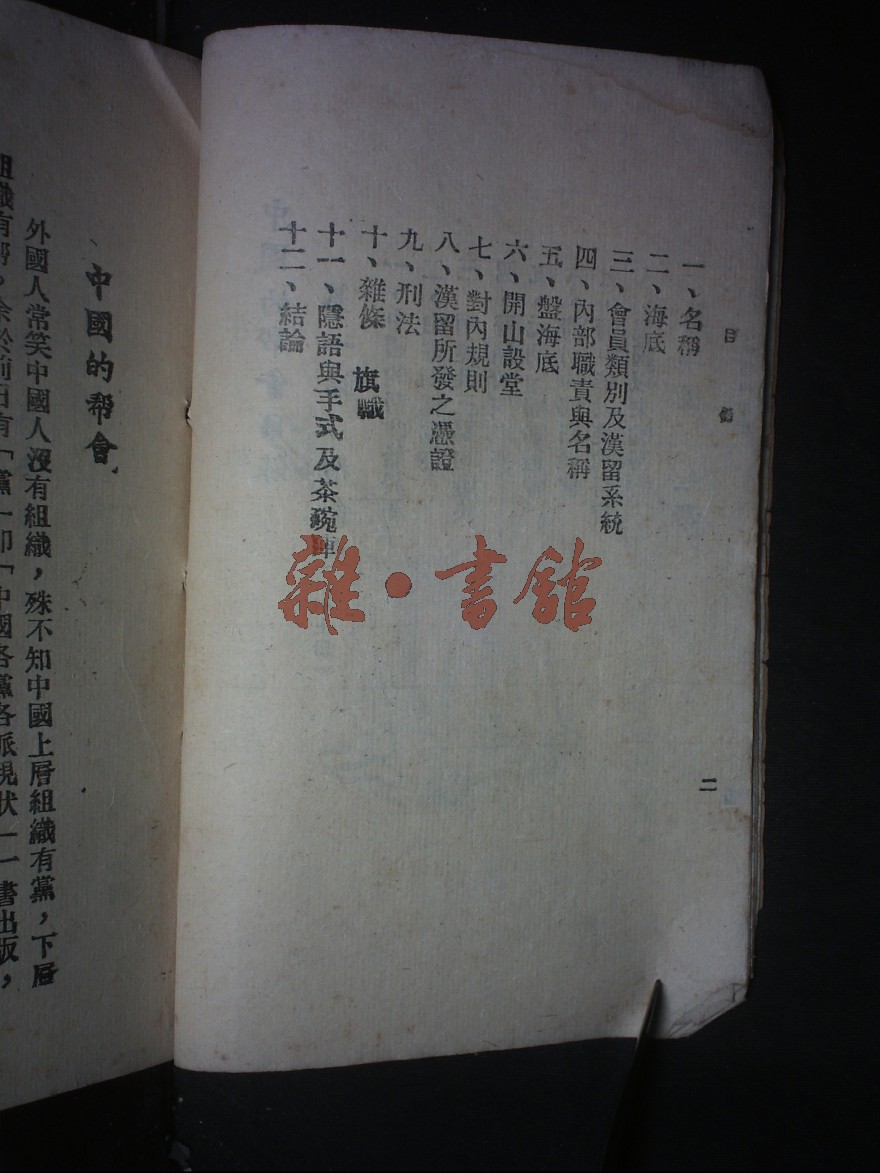 目錄
一、名稱
二、海底
三、會員類別及漢留系統
四、內部職責與名稱
五、盤海底
六、開山設堂
七、對內規則
八、漢留所發之憑證
九、刑法
十、雜條 旗幟
十一、隱語與手式及茶碗陣
十二、結論
二
雜·書館
中國的幫會
外國人常笑中國人沒有組織，殊不知中國上層組織有黨，下層
組織有幫。余於前曰有「黨」卽「中國各黨各派現狀」一書出版，